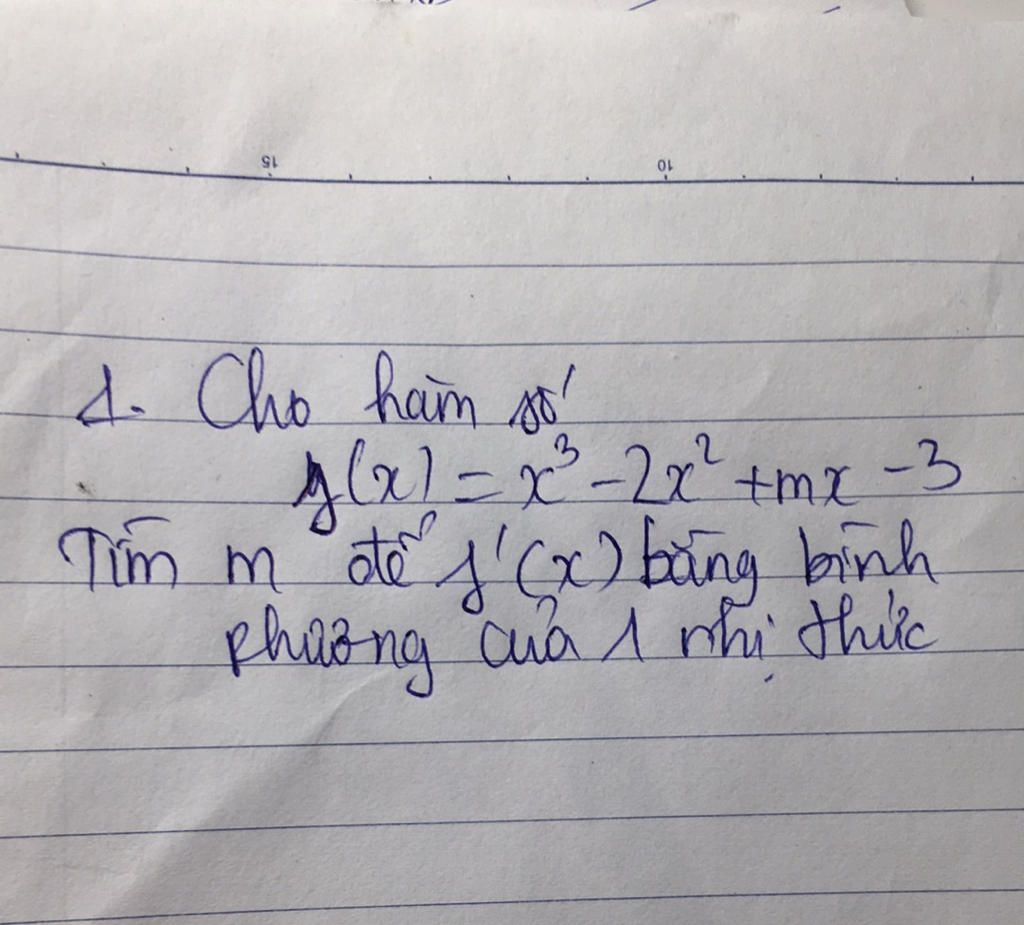 15 10
1. Cho hàm số
y(x) = x³ - 2x² + mx - 3
Tìm m để y'(x) bằng bình
phương của 1 nhị thức